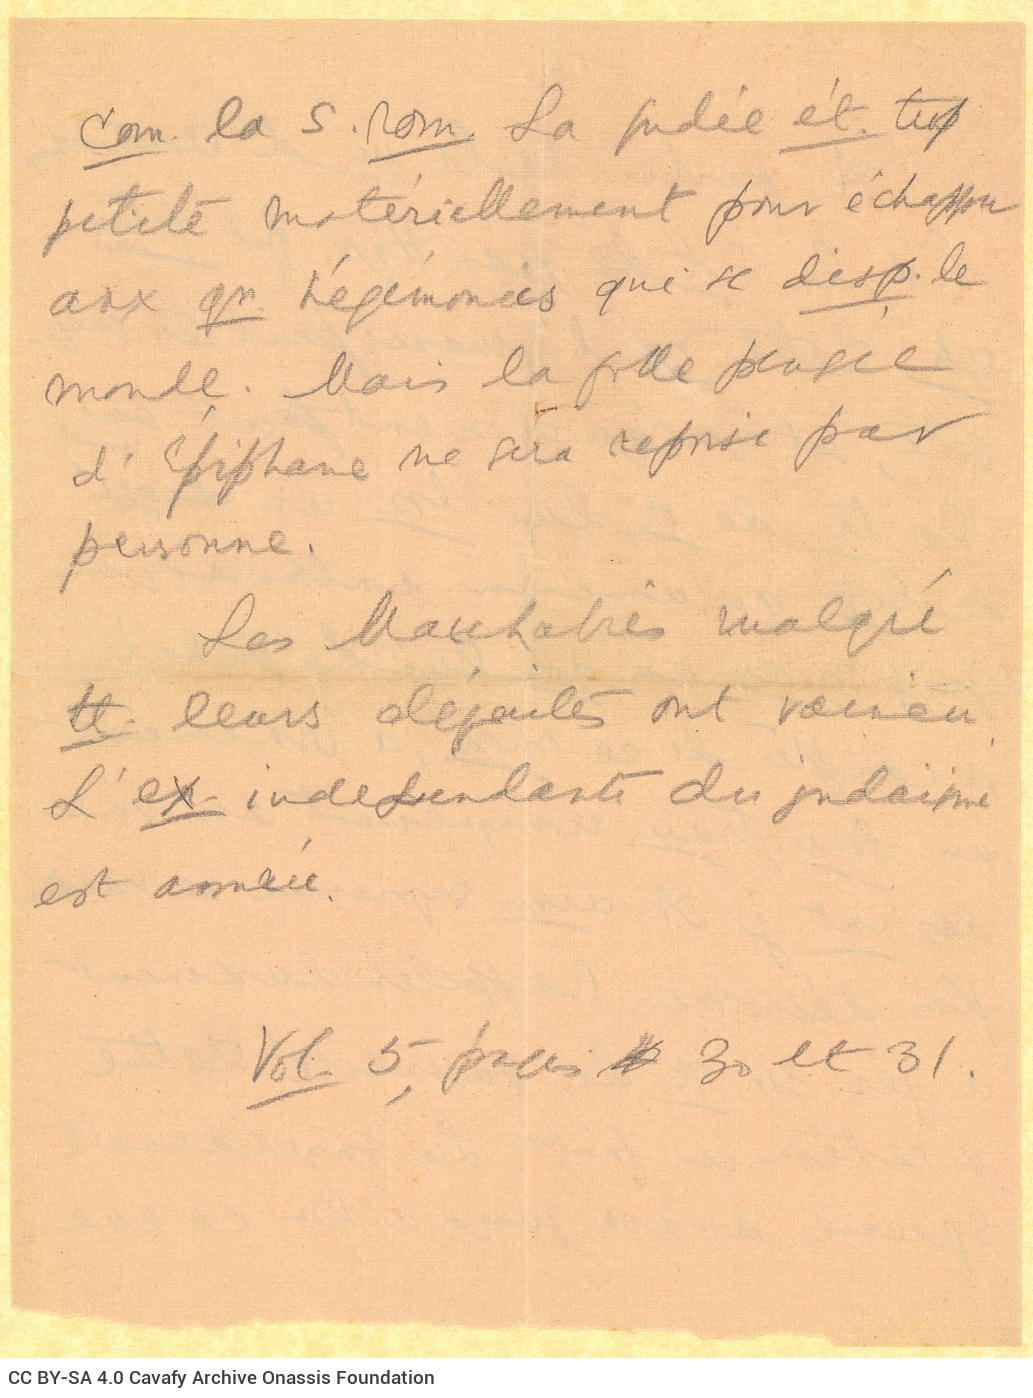 com. la s. rom. La Judée ét. trop
petite matériellement pour échapper
aux gr. hégémonies qui se disp. le
monde. Mais la folle pensée
d'Épiphane ne sera reprise par
personne.
Les Macchabées malgré
tt. leurs défaites ont vaincu.
L'ex. indépendante du judaïsme
est assurée.
Vol. 5, pages 30 et 31.
CC BY-SA 4.0 Cavafy Archive Onassis Foundation